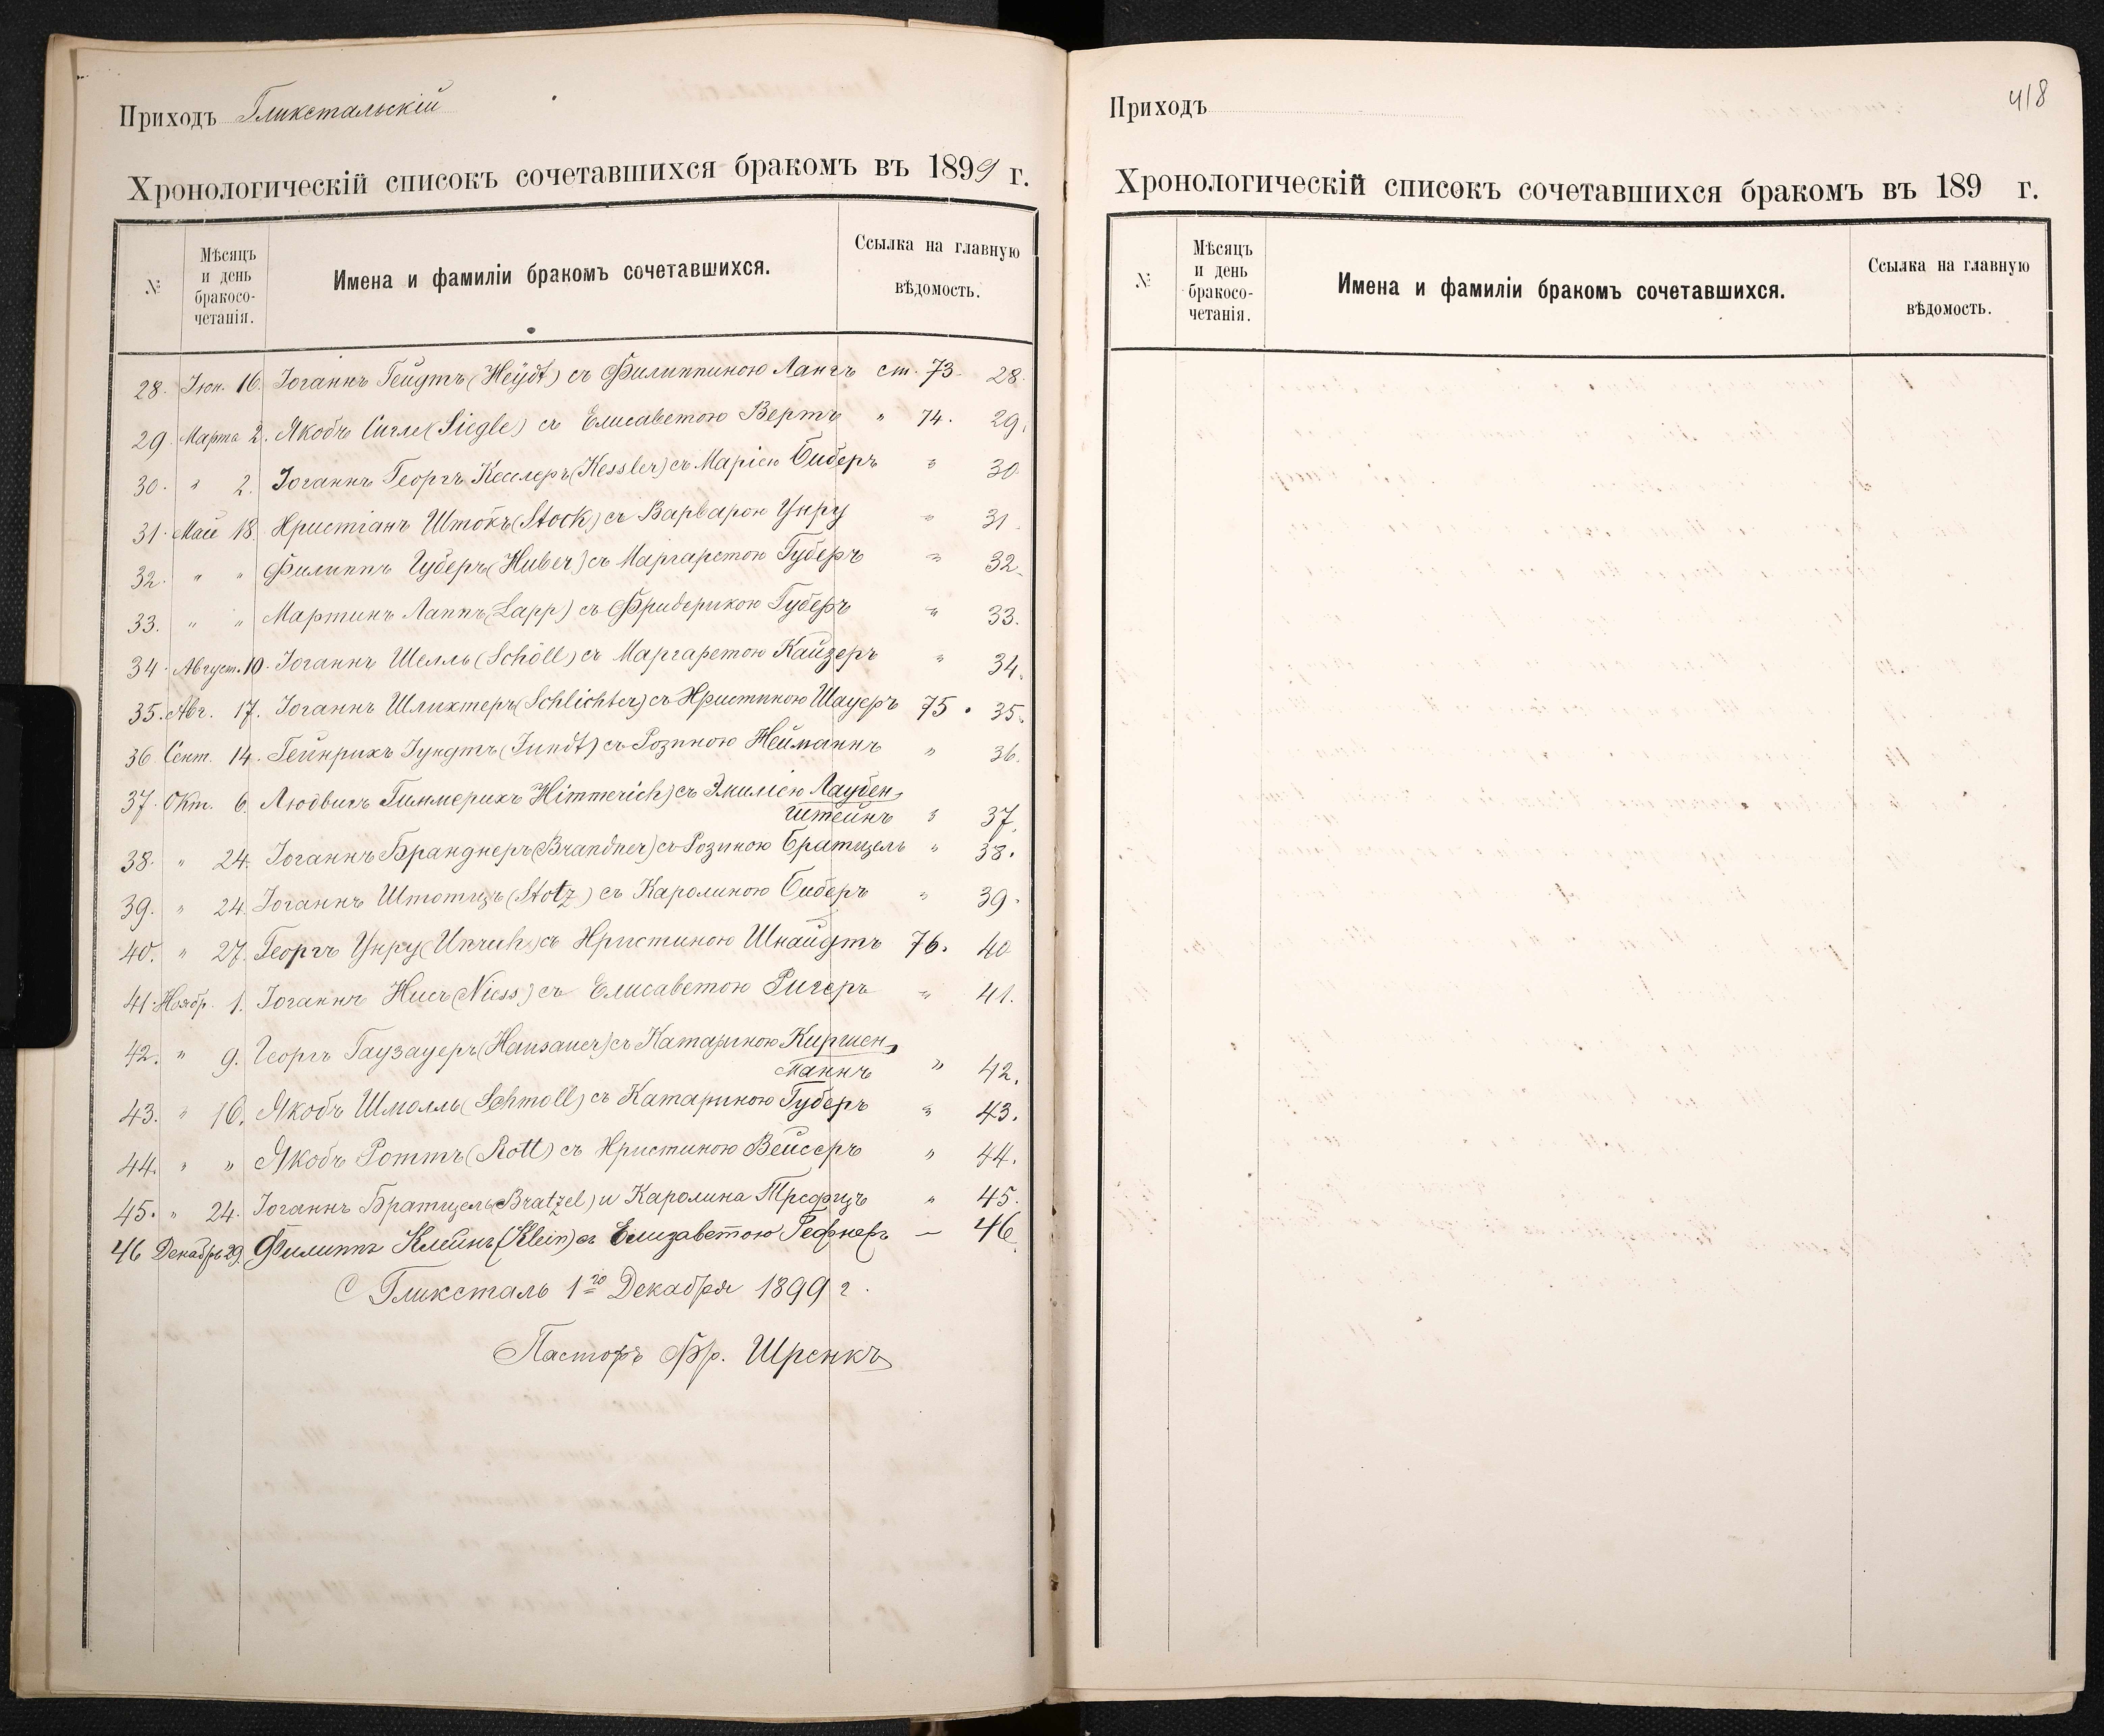 Приходъ Гликстальскій
Хронологическій списокъ сочетавшихся бракомъ въ 1899 г.
№
Мѣсяцъ
и день
бракосо-
четанія.
Имена и фамиліи бракомъ сочетавшихся.
Ссылка на главную
вѣдомость.
28. Іюн. 16. Іоганнъ Гейдтъ (Heÿdt) съ Филиппиною Лангъ ст. 73 28.
29. Марта 2. Якобъ Сигле (Siegle) съ Елисаветою Вертъ " 74. 29.
30. " 2. Іоганнъ Георгъ Кесслеръ (Kessler) съ Маріею Биберъ " 30
31. Маія 18. Христіанъ Штокъ (Stock) съ Варварою Унру " 31.
32. " " Филиппъ Губеръ (Huber) съ Маргаретою Губеръ " 32.
33. " " Мартинъ Лаппъ (Lapp) съ Фридерикою Губеръ " 33.
34. Август. 10. Іоганнъ Шелль (Schöll) съ Маргаретою Кайзеръ " 34.
35. Авг. 17. Іоганнъ Шлихтеръ (Schlichter) съ Христиною Шауеръ 75. 35.
36 Сент. 14. Гейнрихъ Зундтъ съ Розиною Нейманнъ " 36.
37. Окт. 6. Людвигъ Гиммерихъ (Himmerich) съ Эмиліею Лаубен-
штейнъ " 37.
38. " 24. Іоганнъ Бранднеръ (Brandner) съ Розиною Братцель " 38.
39. " 24. Іоганнъ Штотцъ (Stotz) съ Каролиною Биберъ " 39.
40. " 27. Георгъ Унру (Unruh) съ Христиною Шнайдтъ 76. 40
41. Ноябр. 1. Іоганнъ Нисъ (Niess) съ Елисаветою Ригеръ " 41.
42. " 9. Георгъ Гаузауеръ (Hausauer) съ Катариною Киршен-
маннъ " 42.
43. " 16. Якобъ Шмолль (Schmoll) съ Катариною Губеръ " 43.
44. " " Якобъ Роттъ (Rott) съ Христиною Вейссеръ " 44.
45. " 24. Іоганнъ Братцель (Bratzel) и Каролина " 45.
46 Декабрь 29. Филиппъ Клейнъ (Klein) съ Елизаветою Гефнеръ — 46.
Гликсталь 1го Декабря 1899 г.
Пасторъ Фр. Шренкъ
418
Приходъ
Хронологическій списокъ сочетавшихся бракомъ въ 189 г.
№
Мѣсяцъ
и день
бракосо-
четанія.
Имена и фамиліи бракомъ сочетавшихся.
Ссылка на главную
вѣдомость.